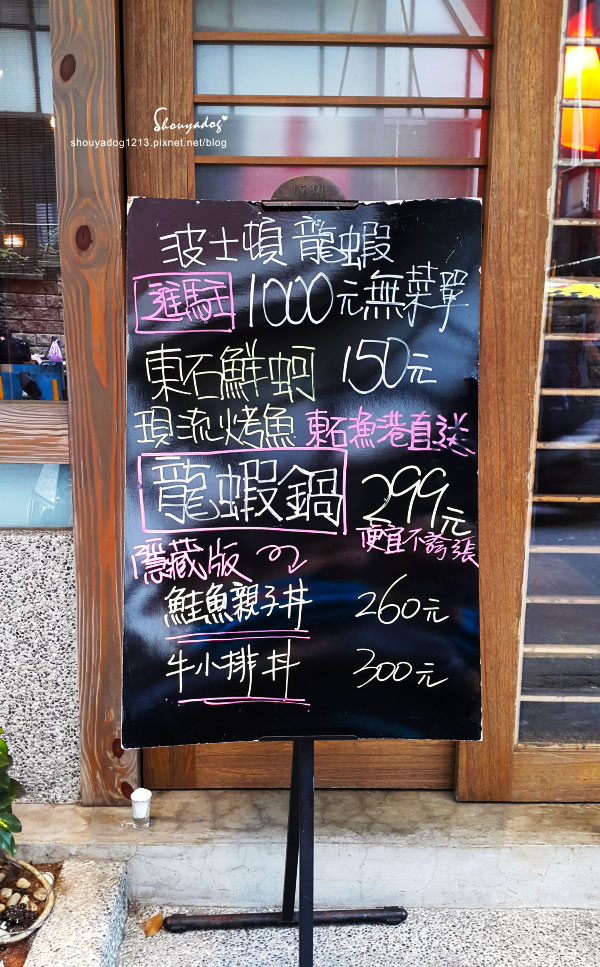 Shouyadog
shouyadog1213.pixnet.net/blog
波士頓 龍蝦
進駐 1000元無菜單
東石鮮蚵 150元
現流烤魚 東石漁港直送
龍蝦鍋 299元
便宜不誇張
隱藏版
鮭魚親子丼 260元
牛小排丼 300元